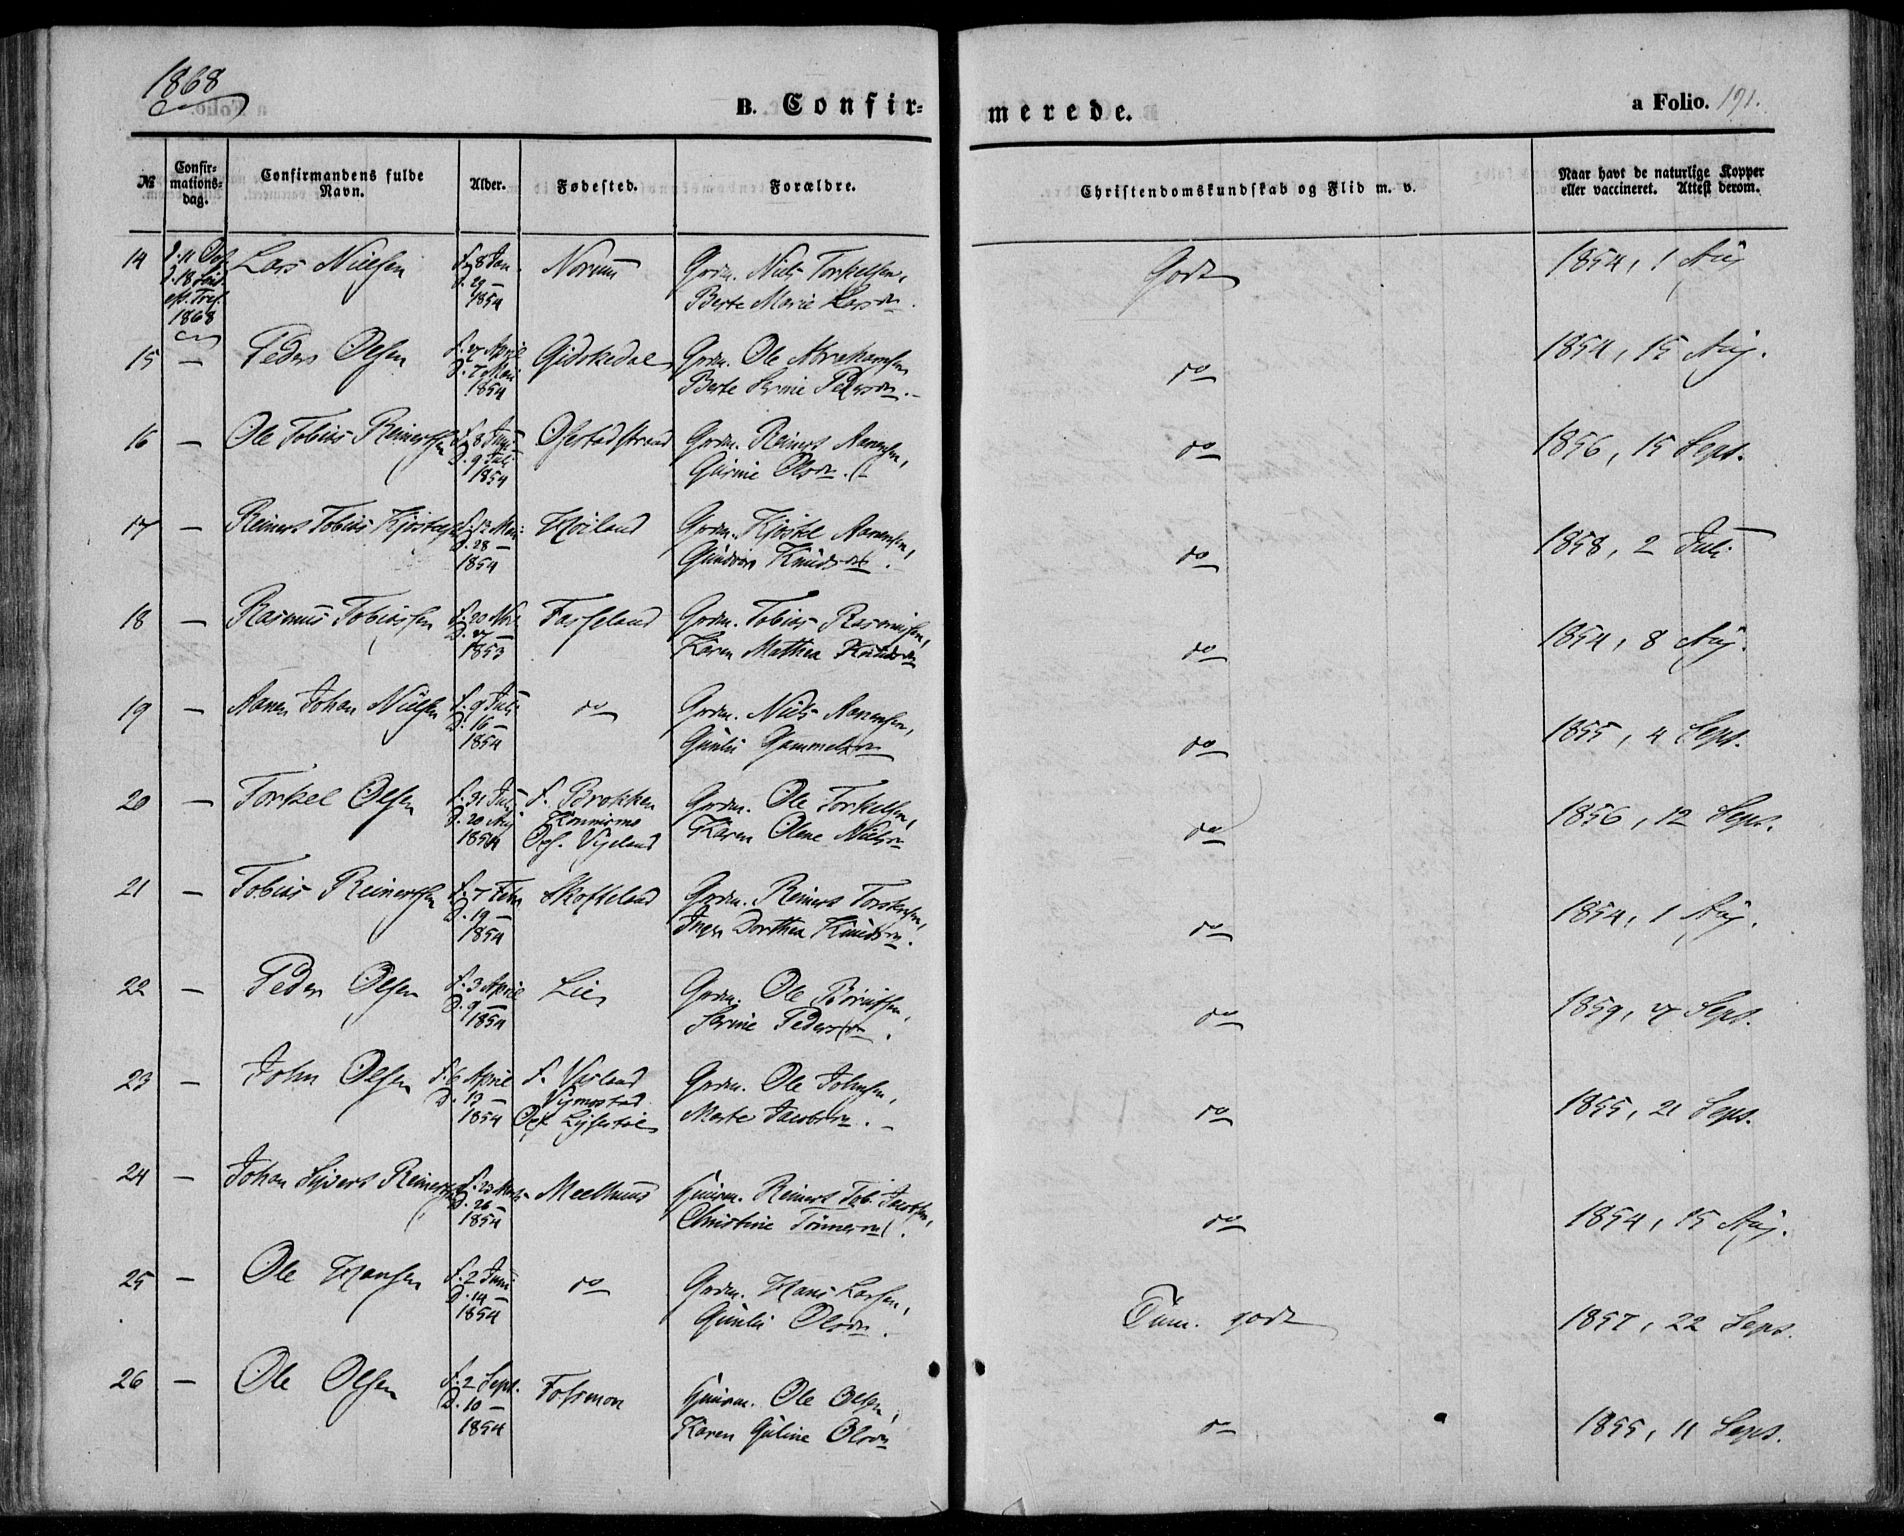 1868
B. Confir-
merede.
a Folio. 191.
No
Confir-
mations-
dag.
Confirmandens fulde
Navn.
Alder.
Fødested.
Forældre.
Christendomskundskab og Flid m. v.
Naar havt de naturlige Kopper
eller vaccineret. Attest derom.
14
D. 11 Oct.
1868
Lars Nielsen
f. 8 Jan
D. 29 —
1854
Norum
Grdm. Niels Torkelsen,
Berte Marie Larsdn.
Godt
1854, 1 Aug
15 —
Peder Olsen
f. 27 April
D. 7 Mai
1854
Gidskedal
Grdm. Ole Abrahamsen
Berte Serine Pedersdn.
do
1854, 15 Aug.
16 —
Ole Tobias Reinertsen
f. 8 Juni
D. 9 Juli
1854
Ofestadstrand
Grdm. Reinert Aanensen,
Gurine Olsdn.
do
1856, 15 Sept.
17 —
Reinert Tobias
f. 12 Mai
D. 28 —
1854
Høiland
Grdm. Kjøstel Aanensen,
Gundvor Knudsdn.
do
1858, 2 Juli
18 —
Rasmus Tobiassen
f. 20 Nov.
D. 27 —
1853
Fasseland
Grdm. Tobias Rasmusen,
Karen Mathea Knudsdn
do
1854, 8 Aug.
19 —
Aanen Johan Nielsen
f. 9 Juli
D. 16 —
1854
do
Grdm. Niels Aanensen,
Gunle Gammelsdn
do
1855, 4 Sept.
20 —
Torkel Olsen
f. 31 Juli
D. 20 Aug
1854
f. Brokken
Konnismo
Opf. Vigeland
Grdm. Ole Torkelsen,
Karen Olene Nielsdn
do
1856, 12 Sept.
21 —
Tobias Reinertsen
f. 7 Febr
D. 19 —
1854
Skofteland
Grdm. Reinert Torkelsen,
Inger Dorthea Knudsdn.
do
1854, 1 Aug.
22 —
Peder Olsen
f. 3 April
D. 9 —
1854
Lie
Grdm. Ole Børuffsen,
Serine Pedersdn.
do
1859, 27 Sept.
23 —
John Olsen
f. 6 April
D. 13 —
1854
f. Vasland
Vigmostad
Opf.
Grdm. Ole Johnsen,
Marte Jacobsdn.
do
1855, 21 Sept.
24 —
Johan Sivert Reinertsen
f. 23 Marts
D. 26 —
1854
Meelhuus
Huusm. Reinert Tob. Jacobsen,
Christine Tønnesdn.
do
1854, 15 Aug.
25 —
Ole Hansen
f. 2 Juni
D. 14 —
1854
do
Grdm. Hans Larsen,
Gunle Olsdn.
Tem. godt
1857, 22 Sept.
26 —
Ole Olsen
f. 2 Sept.
D. 10 —
1854
Fossmon
Huusm. Ole Olsen,
Karen Guline Olsdn
do
1855, 11 Sept.